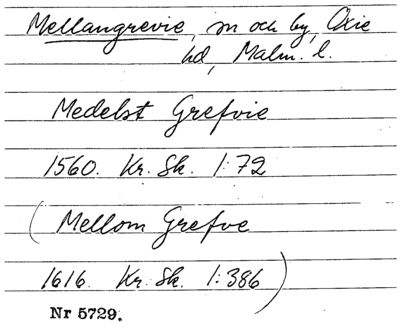 Mellangrevie, sn och by, Oxie
hd, Malm. l.
Medelst Grefvie
1560. Kr. Sk. 1:72
(Mellom Grefve
1616. Kr. Sk. 1:386)
Nr 5729.